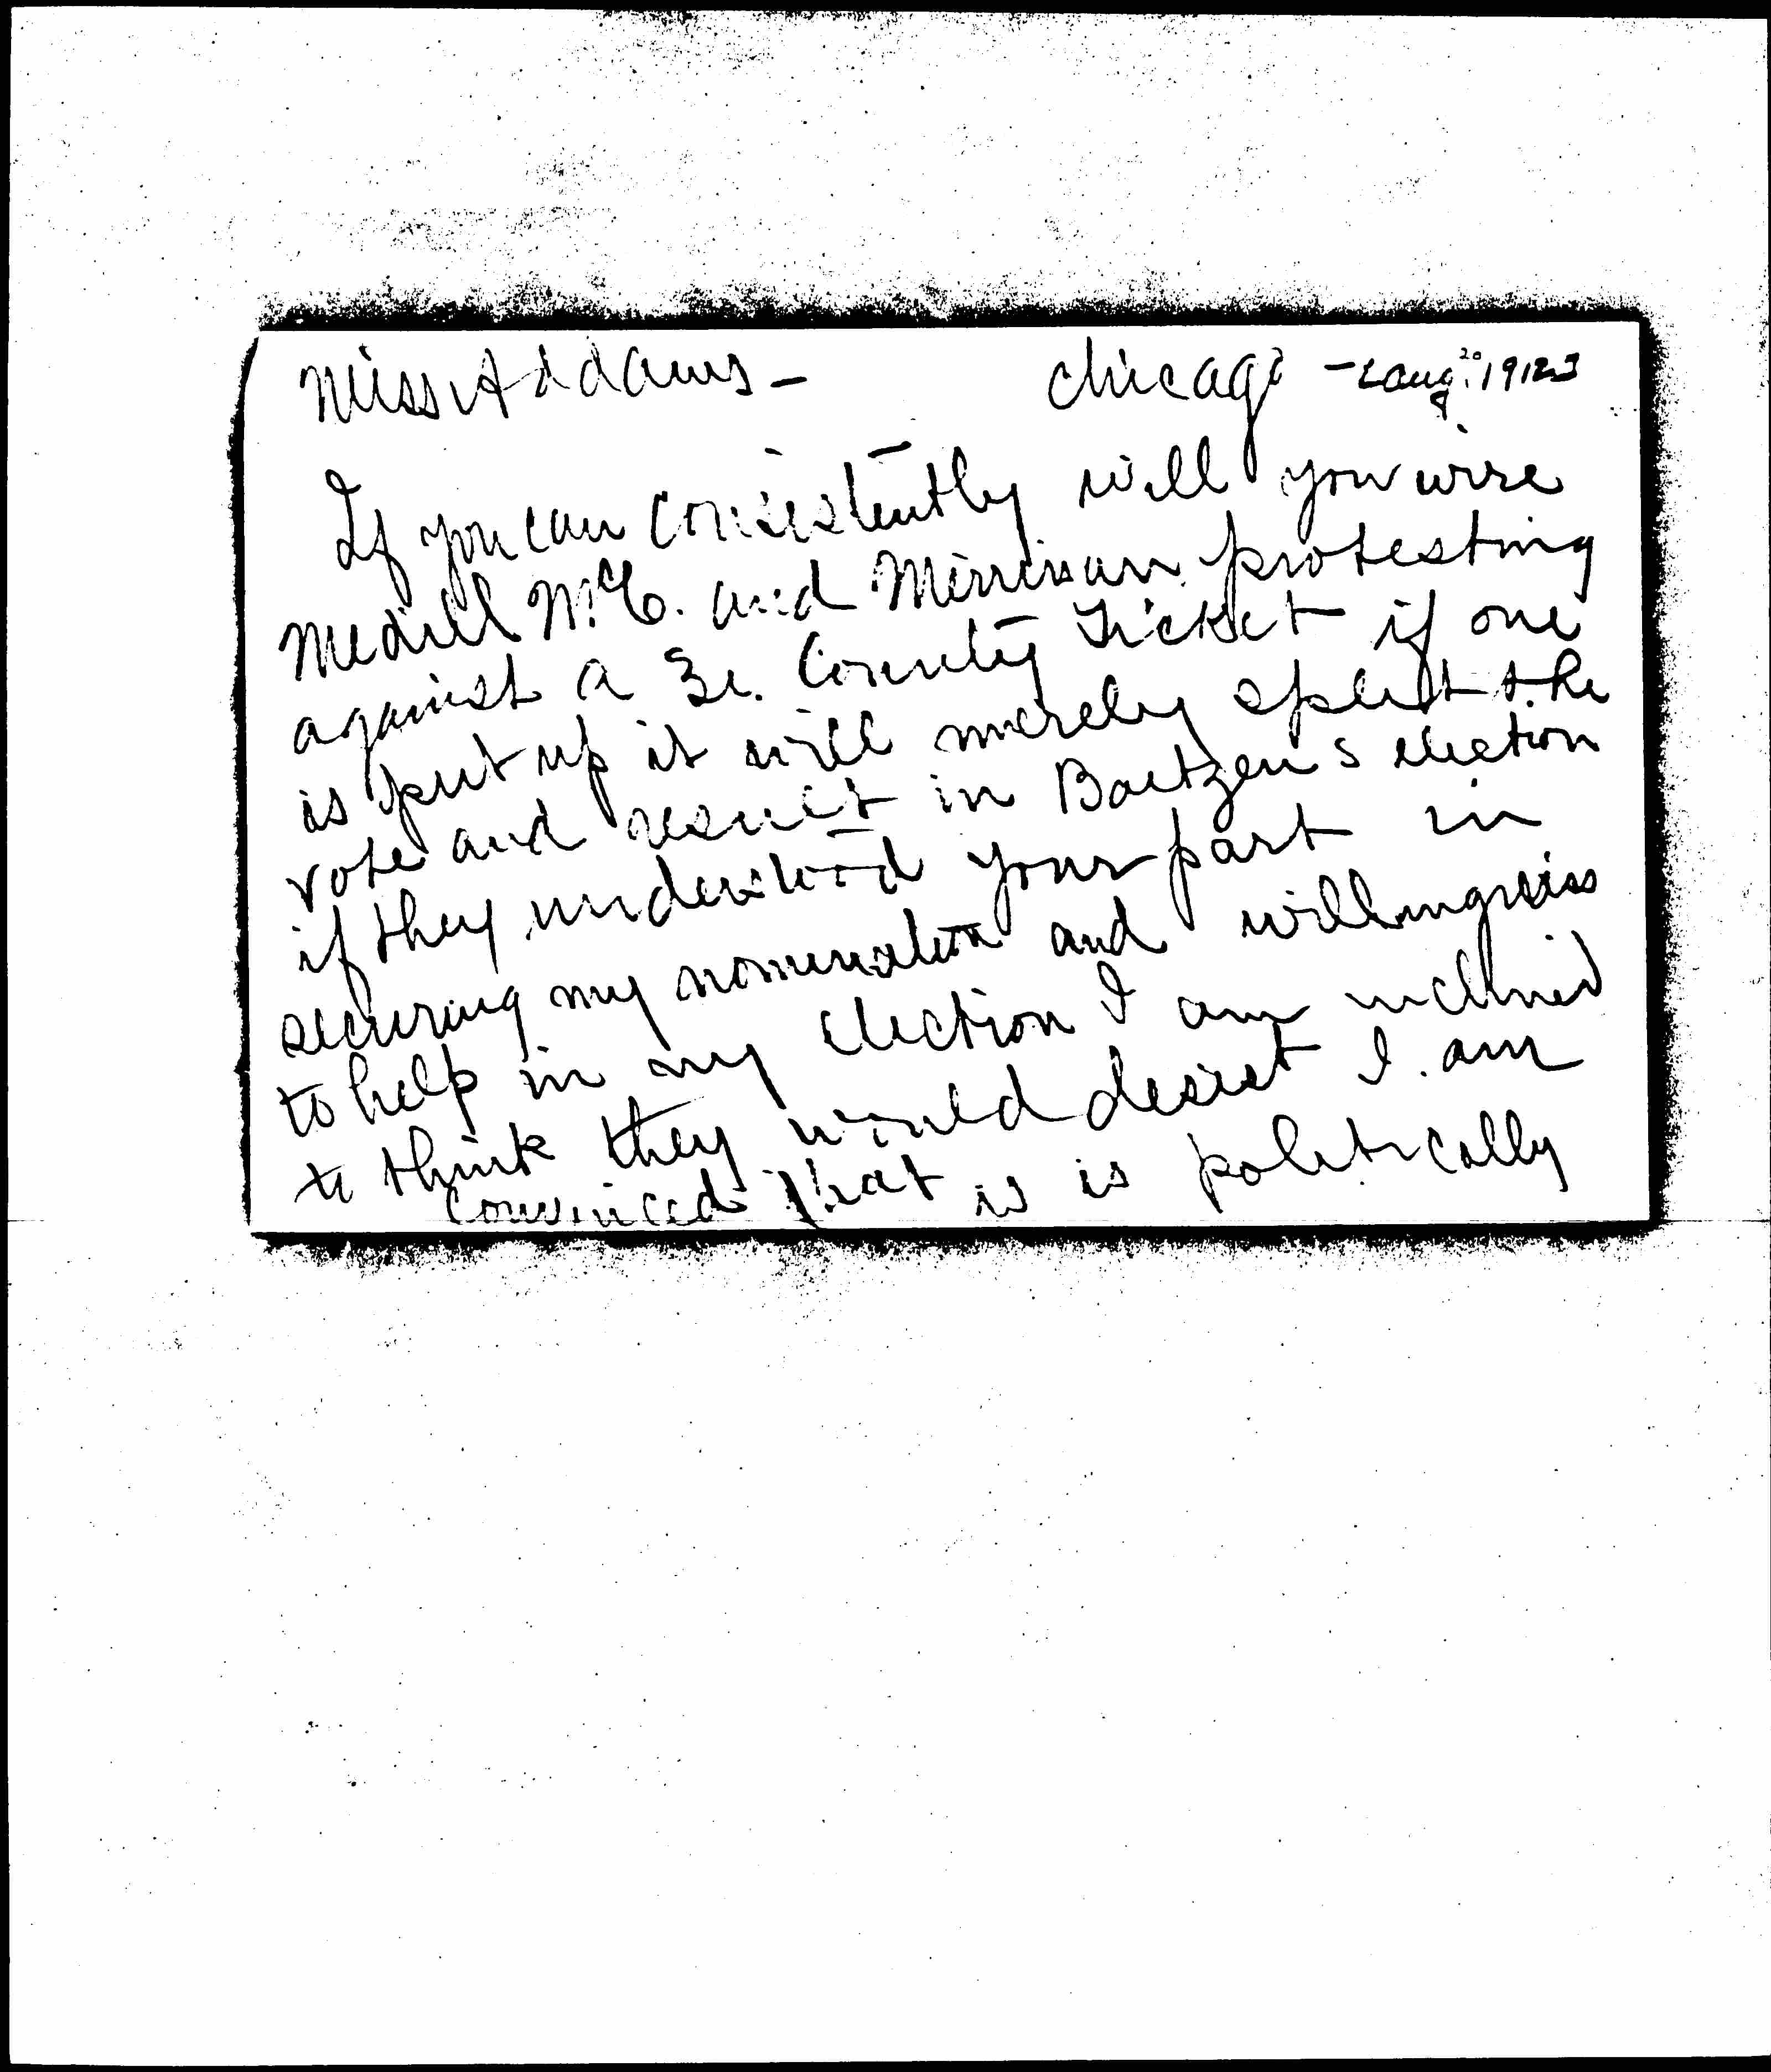 Miss Addams - Chicago - Aug. 20 1912
If you can consistently will you wire
Medill McC. and Merriam protesting
against a 3d. County Ticket if one
is put up it will merely split the
vote and result in Bartzen s election
if they understood your part in
securing my nomination and willingness
to help in my election I am inclined
to think they would desist I am
convinced that is is politically